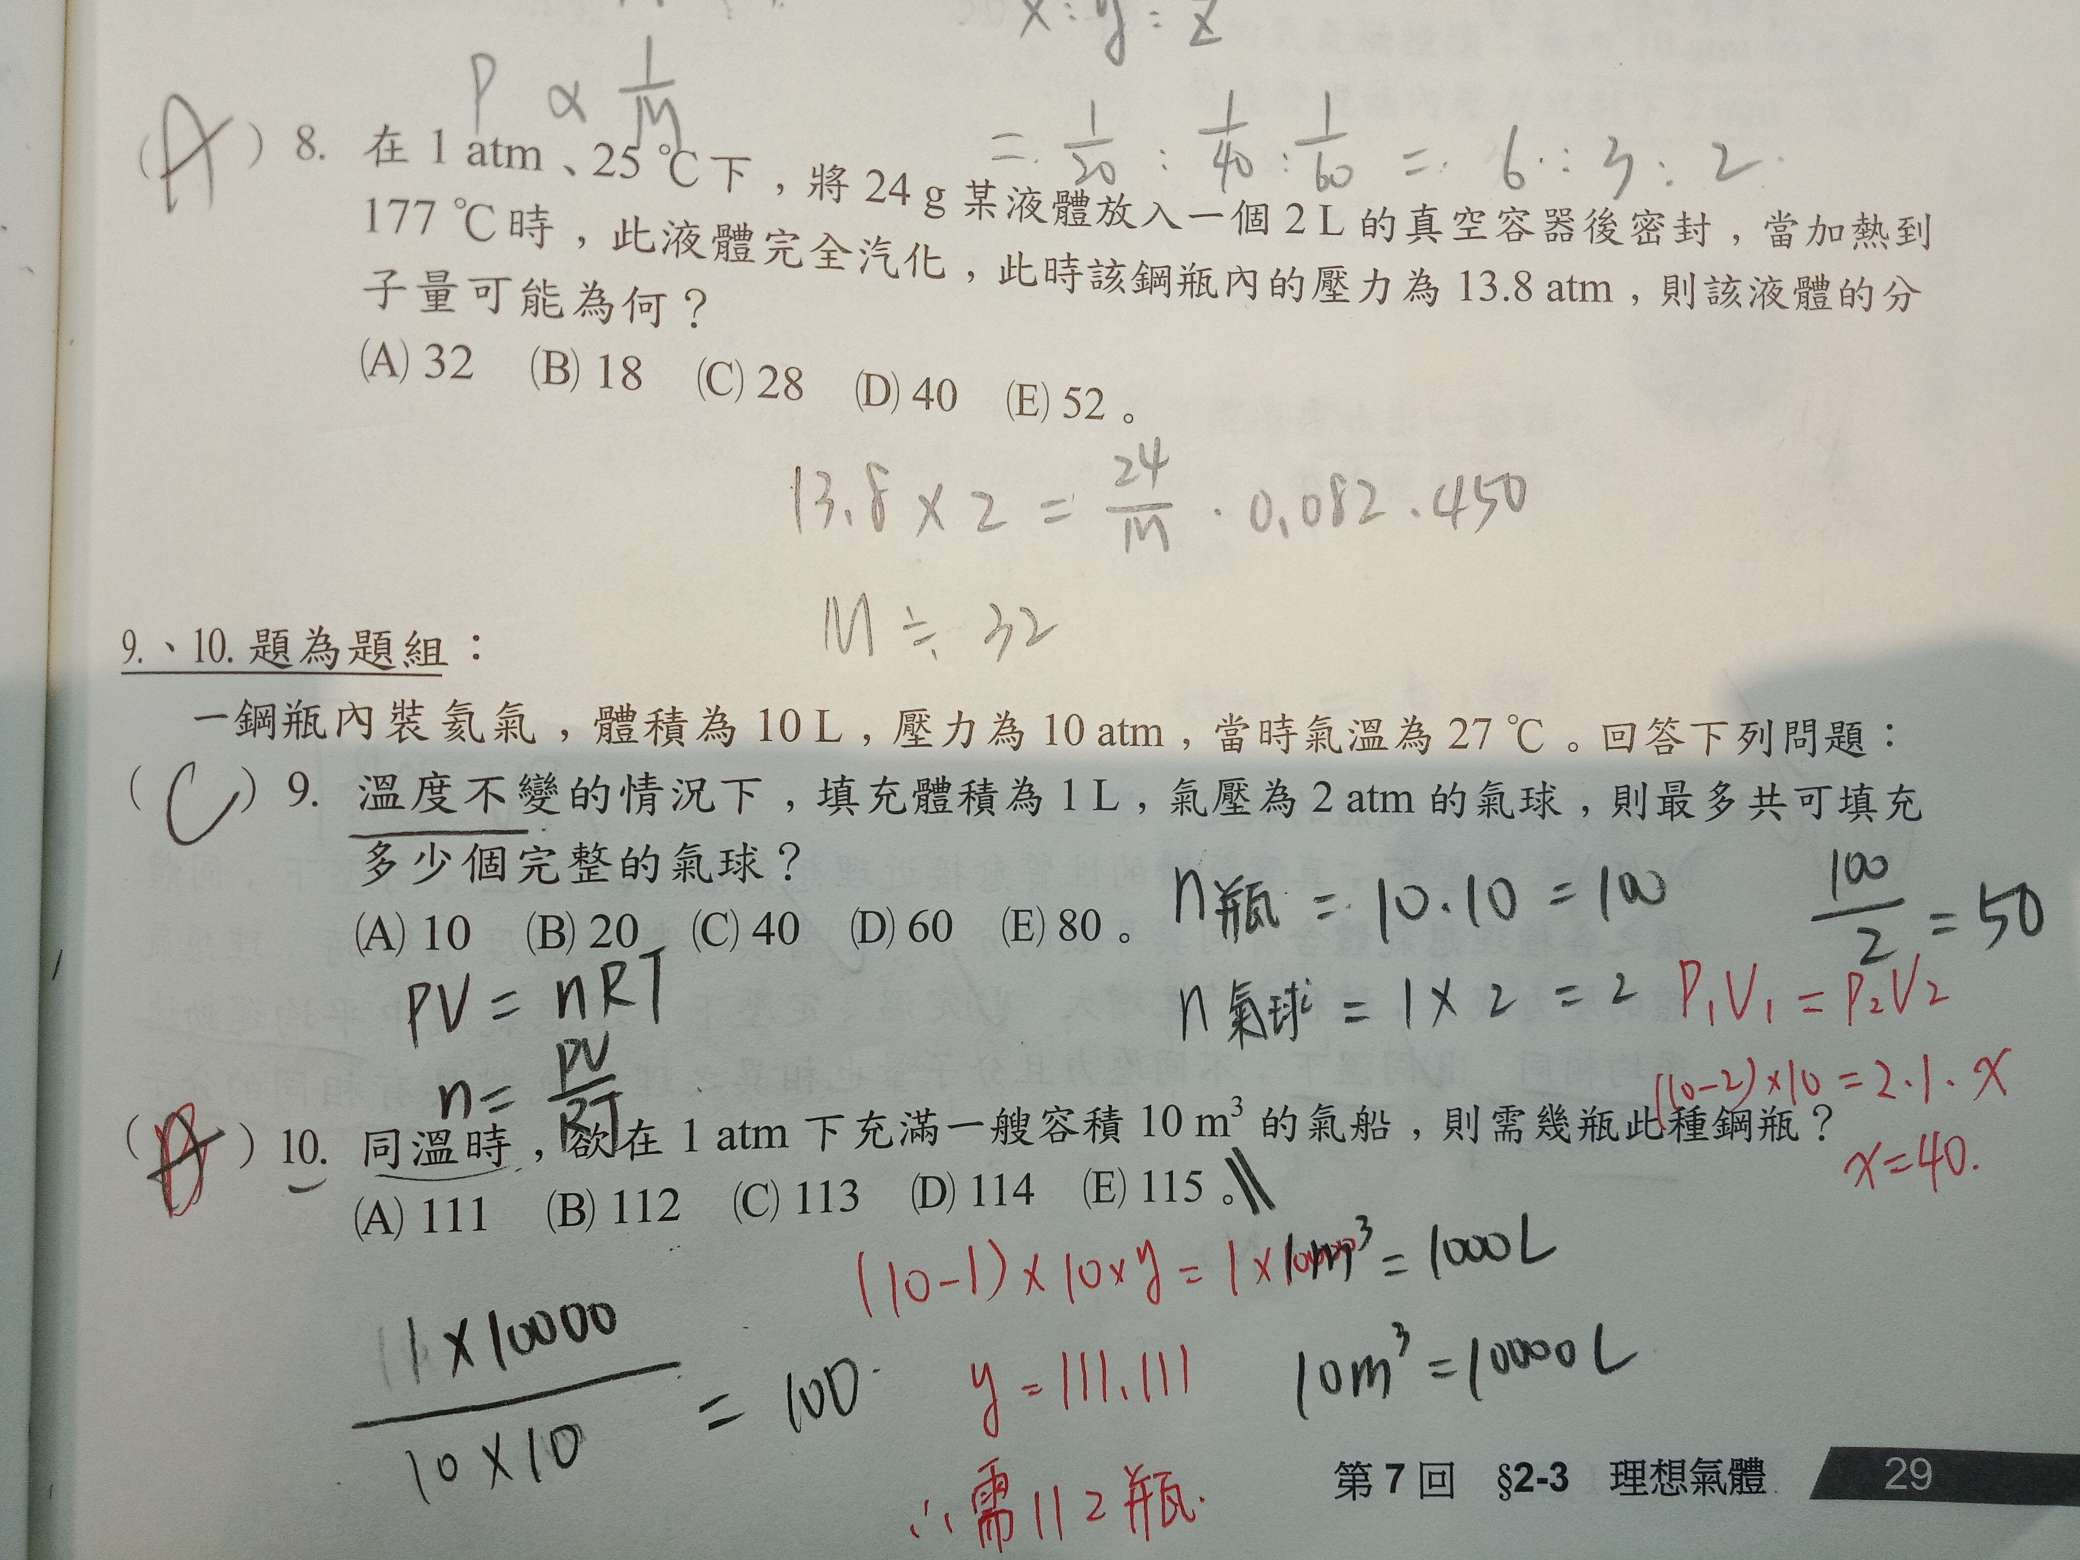 x : y : z
P ∝ 1/M
= 1/20 : 1/40 : 1/60 = 6 : 3 : 2
( A ) 8. 在 1 atm、25 ℃下,將 24 g 某液體放入一個 2 L 的真空容器後密封,當加熱到
177 ℃時,此液體完全汽化,此時該鋼瓶內的壓力為 13.8 atm,則該液體的分
子量可能為何?
(A) 32 (B) 18 (C) 28 (D) 40 (E) 52。
13.8 × 2 = 24/M · 0.082 · 450
M ≒ 32
9.、10. 題為題組:
一鋼瓶內裝氦氣,體積為 10 L,壓力為 10 atm,當時氣溫為 27 ℃。回答下列問題:
( C ) 9. 溫度不變的情況下,填充體積為 1 L,氣壓為 2 atm 的氣球,則最多共可填充
多少個完整的氣球?
(A) 10 (B) 20 (C) 40 (D) 60 (E) 80。
n瓶 = 10.10 = 100
100/2 = 50
PV = nRT
n氣球 = 1 × 2 = 2
P₁V₁ = P₂V₂
n = PV/RT
(10-2)×10 = 2.1.x
x = 40.
( ) 10. 同溫時,欲在 1 atm 下充滿一艘容積 10 m³ 的氣船,則需幾瓶此種鋼瓶?
(A) 111 (B) 112 (C) 113 (D) 114 (E) 115。
(10-1)×10×y = 1×10000
1m³ = 1000L
1×10000/10×10 = 100
y = 111.111
10m³ = 10000L
∴需112瓶.
第 7 回 §2-3 理想氣體 29